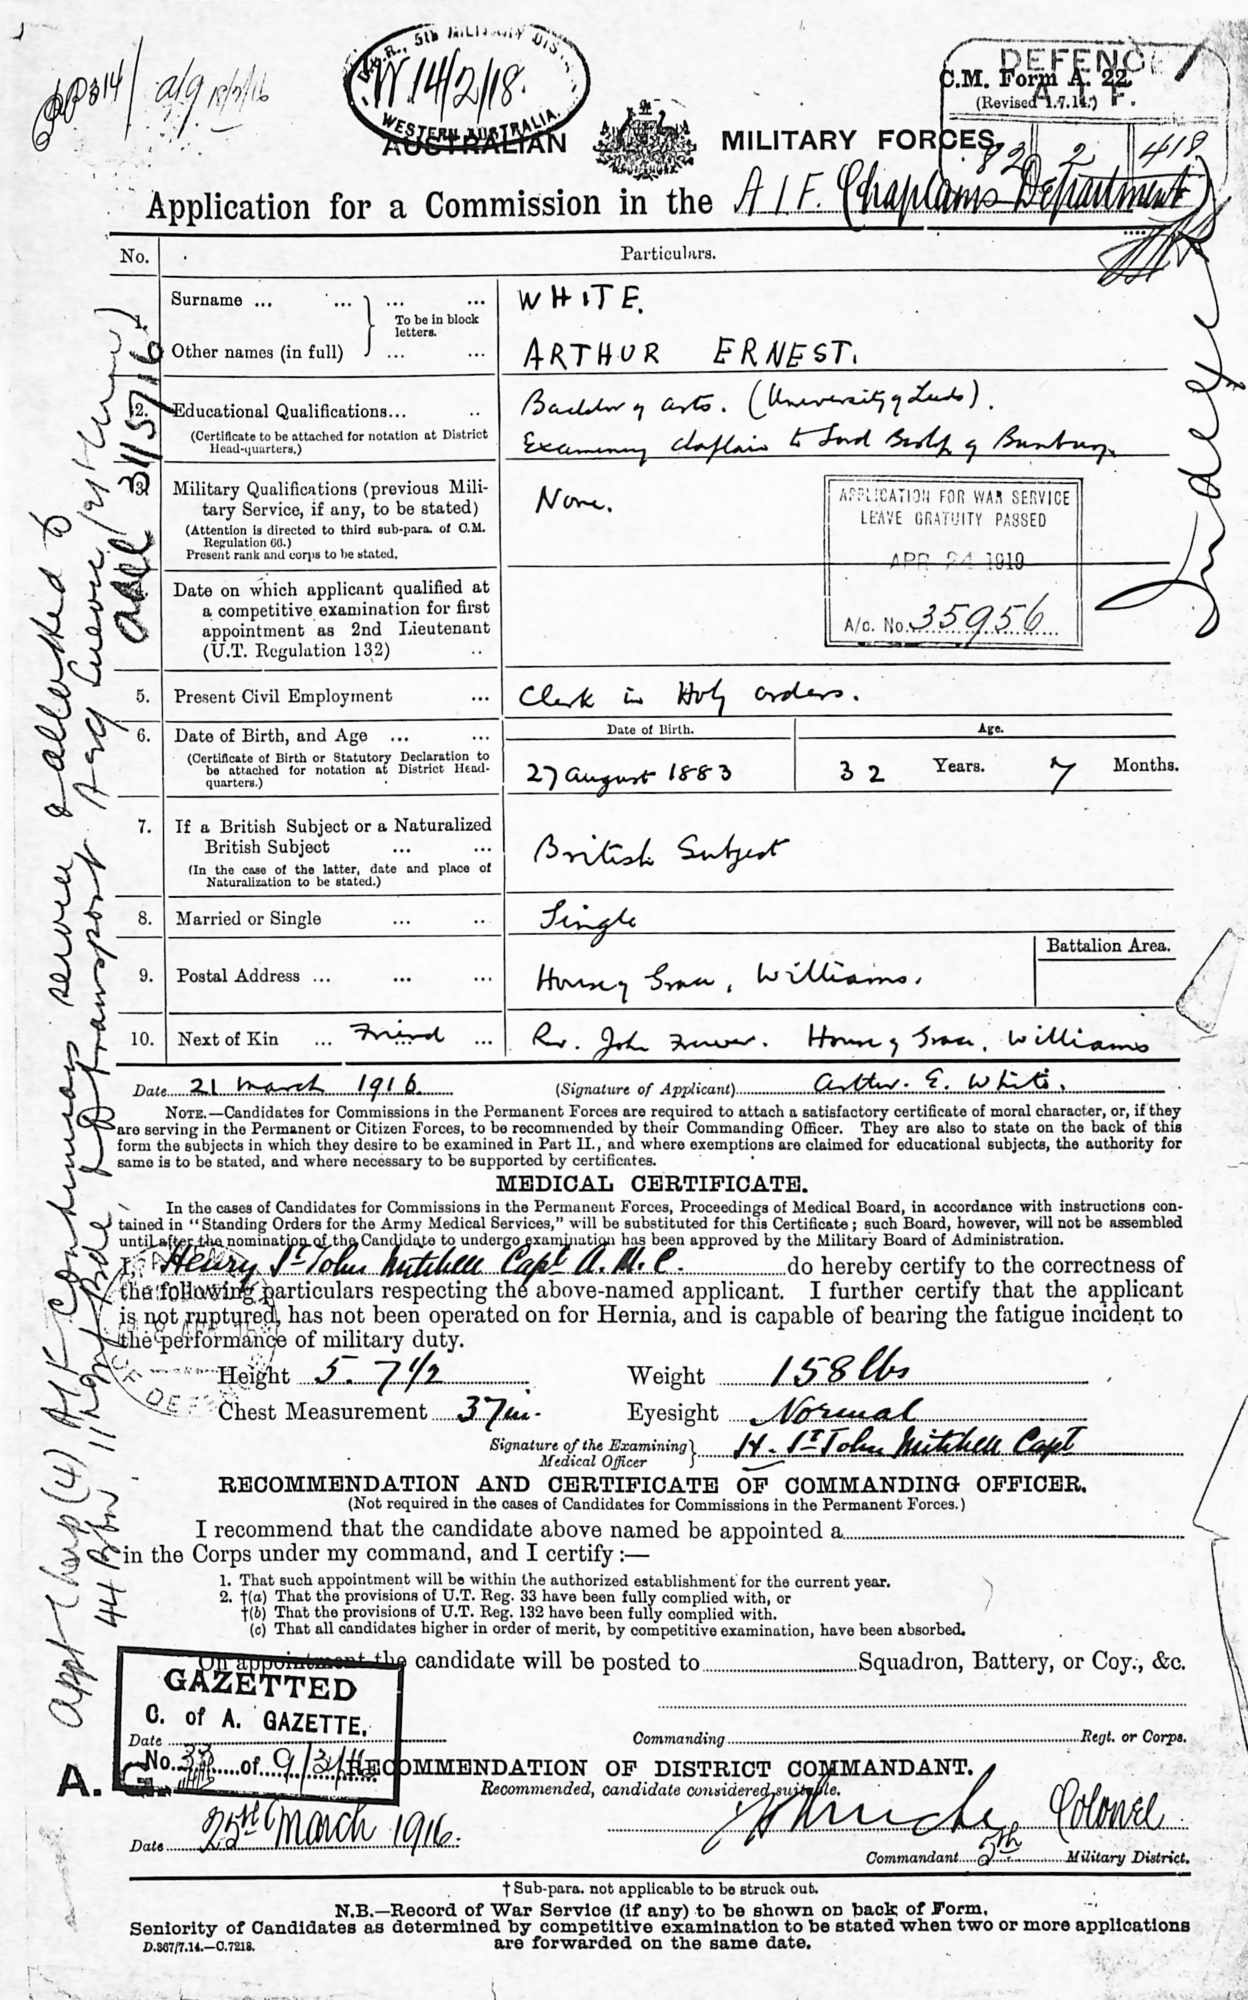 W. 14/2/18.
5th MILITARY DIS
WESTERN AUSTRALIA.
DEFENCE
A.I.F.
C.M. Form A. 22.
(Revised 1.7.14.)
82 2 418
AUSTRALIAN MILITARY FORCES.
Application for a Commission in the A I F. (Chaplains Department)
No. Particulars.
1.
Surname ... ... ... ... WHITE.
To be in block letters.
Other names (in full) ... ... ARTHUR ERNEST.
2. Educational Qualifications... .. Bachelor of arts. (University of Leeds).
(Certificate to be attached for notation at District
Head-quarters.)
Examining chaplain to Lord Bishop of Bunbury.
3. Military Qualifications (previous Mili-
tary Service, if any, to be stated)
(Attention is directed to third sub-para. of C.M.
Regulation 66.)
Present rank and corps to be stated.
None.
APPLICATION FOR WAR SERVICE
LEAVE GRATUITY PASSED
APR 24 1919
A/c. No. 35956
Date on which applicant qualified at
a competitive examination for first
appointment as 2nd Lieutenant
(U.T. Regulation 132) ..
5. Present Civil Employment ... Clerk in Holy orders.
6. Date of Birth, and Age ... ...
(Certificate of Birth or Statutory Declaration to
be attached for notation at District Head-
quarters.)
Date of Birth. Age.
27 august 1883 32 Years. 7 Months.
7. If a British Subject or a Naturalized
British Subject ... ...
(In the case of the latter, date and place of
Naturalization to be stated.)
British Subject
8. Married or Single ... .. Single
Battalion Area.
9. Postal Address ... ... ... House of Grace, Williams.
10. Next of Kin ... Friend ... Rev. John Frewer. House of Grace, Williams
Date 21 March 1916. (Signature of Applicant) Arthur. E. White.
NOTE.—Candidates for Commissions in the Permanent Forces are required to attach a satisfactory certificate of moral character, or, if they
are serving in the Permanent or Citizen Forces, to be recommended by their Commanding Officer. They are also to state on the back of this
form the subjects in which they desire to be examined in Part II., and where exemptions are claimed for educational subjects, the authority for
same is to be stated, and where necessary to be supported by certificates.
MEDICAL CERTIFICATE.
In the cases of Candidates for Commissions in the Permanent Forces, Proceedings of Medical Board, in accordance with instructions con-
tained in "Standing Orders for the Army Medical Services," will be substituted for this Certificate; such Board, however, will not be assembled
until after the nomination of the Candidate to undergo examination has been approved by the Military Board of Administration.
I, Henry St John Mitchell Capt A.M.C. do hereby certify to the correctness of
the following particulars respecting the above-named applicant. I further certify that the applicant
is not ruptured, has not been operated on for Hernia, and is capable of bearing the fatigue incident to
the performance of military duty.
Height 5. 7 1/2 Weight 158 lbs
Chest Measurement 37 in. Eyesight Normal
Signature of the Examining Medical Officer H. St John Mitchell Capt
RECOMMENDATION AND CERTIFICATE OF COMMANDING OFFICER.
(Not required in the cases of Candidates for Commissions in the Permanent Forces.)
I recommend that the candidate above named be appointed a
in the Corps under my command, and I certify:—
1. That such appointment will be within the authorized establishment for the current year.
2. †(a) That the provisions of U.T. Reg. 33 have been fully complied with, or
†(b) That the provisions of U.T. Reg. 132 have been fully complied with.
(c) That all candidates higher in order of merit, by competitive examination, have been absorbed.
On appointment the candidate will be posted to Squadron, Battery, or Coy., &c.
GAZETTED
C. of A. GAZETTE.
No. 33 of 9/3/16
Date Commanding Regt. or Corps.
A. G.
RECOMMENDATION OF DISTRICT COMMANDANT.
Recommended, candidate considered suitable.
Date 25th March 1916. Colonel
Commandant 5th Military District.
† Sub-para. not applicable to be struck out.
N.B.—Record of War Service (if any) to be shown on back of Form.
Seniority of Candidates as determined by competitive examination to be stated when two or more applications
are forwarded on the same date.
D.367/7.14.—C.7218.
Appt Chap (4) AIF Continuous service & allotted to
44 Bn 11 Inf Bde
31/5/16
Indexed